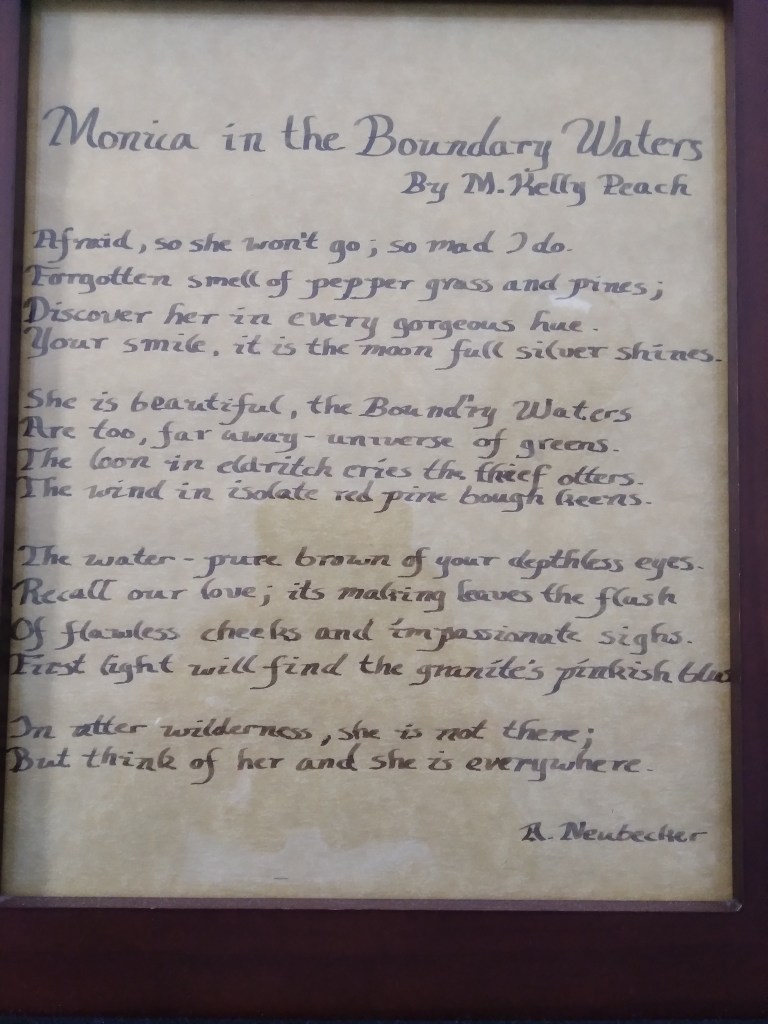 Monica in the Boundary Waters
By M. Kelly Peach
Afraid, so she won't go; so mad I do.
Forgotten smell of pepper grass and pines;
Discover her in every gorgeous hue.
Your smile, it is the moon full silver shines.
She is beautiful, the Bound'ry Waters
Are too, far away - universe of greens.
The loon in eldritch cries the thief otters.
The wind in isolate red pine bough keens.
The water - pure brown of your depthless eyes.
Recall our love; its making leaves the flush
Of flawless cheeks and impassionate sighs.
First light will find the granite's pinkish
In utter wilderness, she is not there;
But think of her and she is everywhere.
A. Neubecker